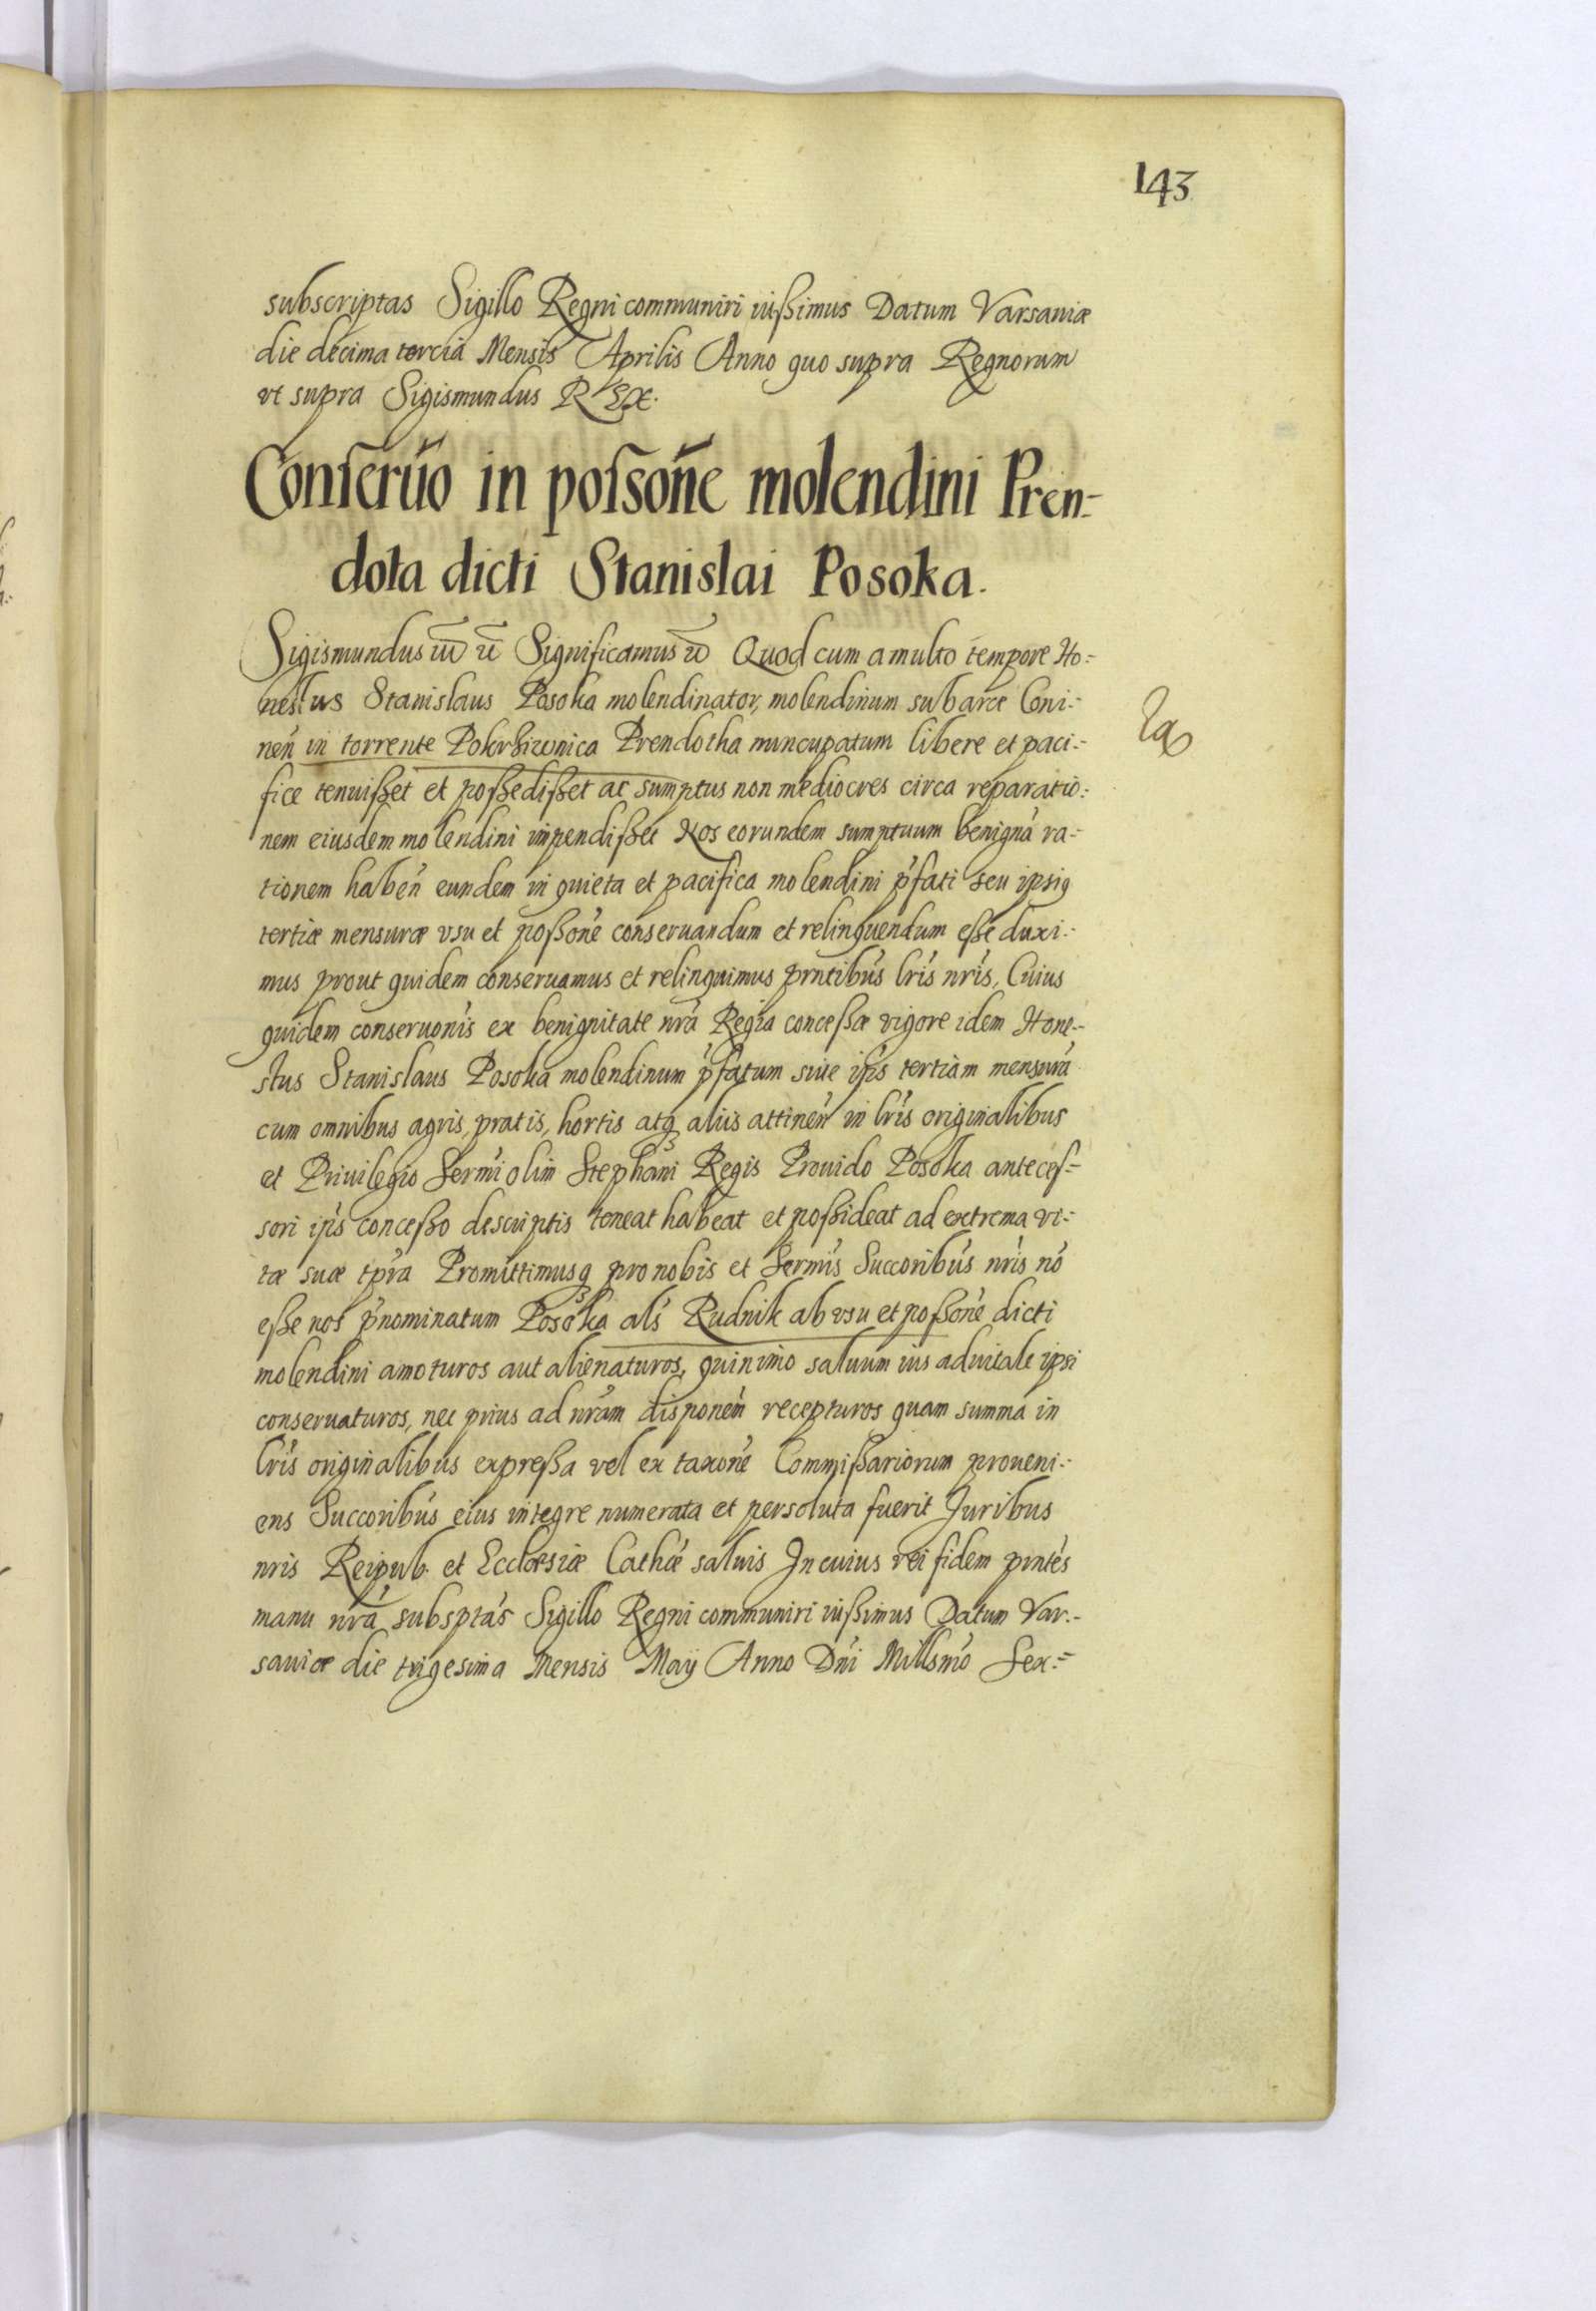 143
subscriptas Sigillo Regni communiri iußimus Datum Varsaniæ
die decima tercia Mensis Aprilis Anno quo supra Regnorum
vt supra Sigismundus REX.
Conſerũo in poſsoñe molendini Pren=
dota dicti Stanislai Posoka.
Sigismundus Significamus Quod cum a multo tempore Ho=
nestus Stanislaus Posoka molendinator, molendinum sub arce Coni=
neñ in torrente Pokrziwnica Prendotha nuncupatum libere et paci=
fice tenuißet et poßedißet ac sumptus non mediocres circa reparatio=
nem eiusdem molendini inpendißet Nos eorundem sumptuum benignã ra=
tionem habeñ eundem in quieta et pacifica molendini p̃fati seu ipsiq
tertiæ mensuræ vsu et poßoñe conseruandum et relinquendum eße duxi=
mus prout quidem conseruamus et relinquimus prntibũs lr̃is nr̃is, Cuius
quidem conseruoñis ex benignitate nr̃a Regia conceßæ vigore idem Hone=
stus Stanislaus Posoka molendinum p̃fatum siue ip̃s tertiam mensurã
cum omnibus agris, pratis, hortis atq aliis attineñ in lr̃is originalibus
et Priuilegio Serm̃i olim Stephani Regis Prouido Posoka anteceſ=
sori ip̃s conceßo descriptis teneat habeat et poßideat ad extrema vi=
tæ suæ tp̃ra Promittimusq pro nobis et Serm̃is Succoribũs nr̃is nõ
eße nos p̃nominatum Posoka al̃s Rudnik ab vsu et poßoñe dicti
molendini amoturos aut alienaturos, quinimo saluum ius aduitale ipsi
conseruaturos, nec prius ad nr̃am disponeñ recepturos quam summa in
lr̃is originalibus expreßa vel ex taxoñe Commißariorum proueni=
ens Succoribũs eius integre numerata et persoluta fuerit Juribus
nris Reipub. et Ecclæsiæ Cathæ̃ saluis In cuius rei fidem prntẽs
manu nr̃a subsptãs Sigillo Regni communiri iußimus Datum Var=
sauiæ die trigesima Mensis Maÿ Anno Dñi Millsm̃o Sex=